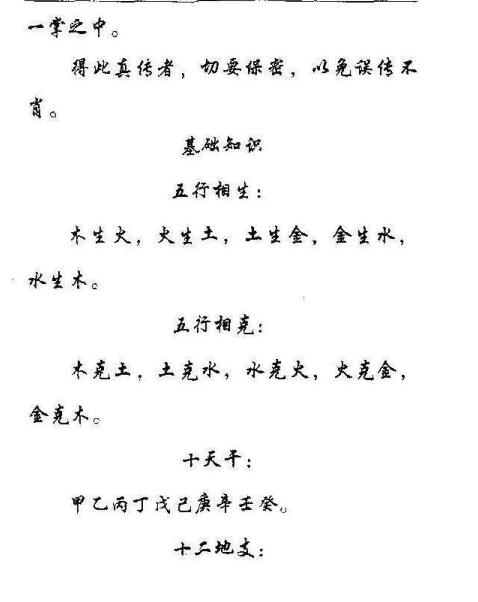 一掌之中。
得此真传者，切要保密，以免误传不
肖。
基础知识
五行相生：
木生火，火生土，土生金，金生水，
水生木。
五行相克：
木克土，土克水，水克火，火克金，
金克木。
十天干；
甲乙丙丁戊己庚辛壬癸。
十二地支：